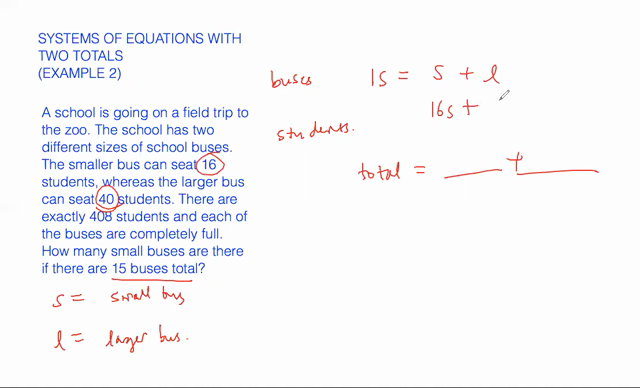 SYSTEMS OF EQUATIONS WITH
TWO TOTALS
(EXAMPLE 2)
A school is going on a field trip to
the zoo. The school has two
different sizes of school buses.
The smaller bus can seat 16
students, whereas the larger bus
can seat 40 students. There are
exactly 408 students and each of
the buses are completely full.
How many small buses are there
if there are 15 buses total?
s = small bus
l = larger bus.
buses 15 = s + l
16s +
students.
total = ____ + ____